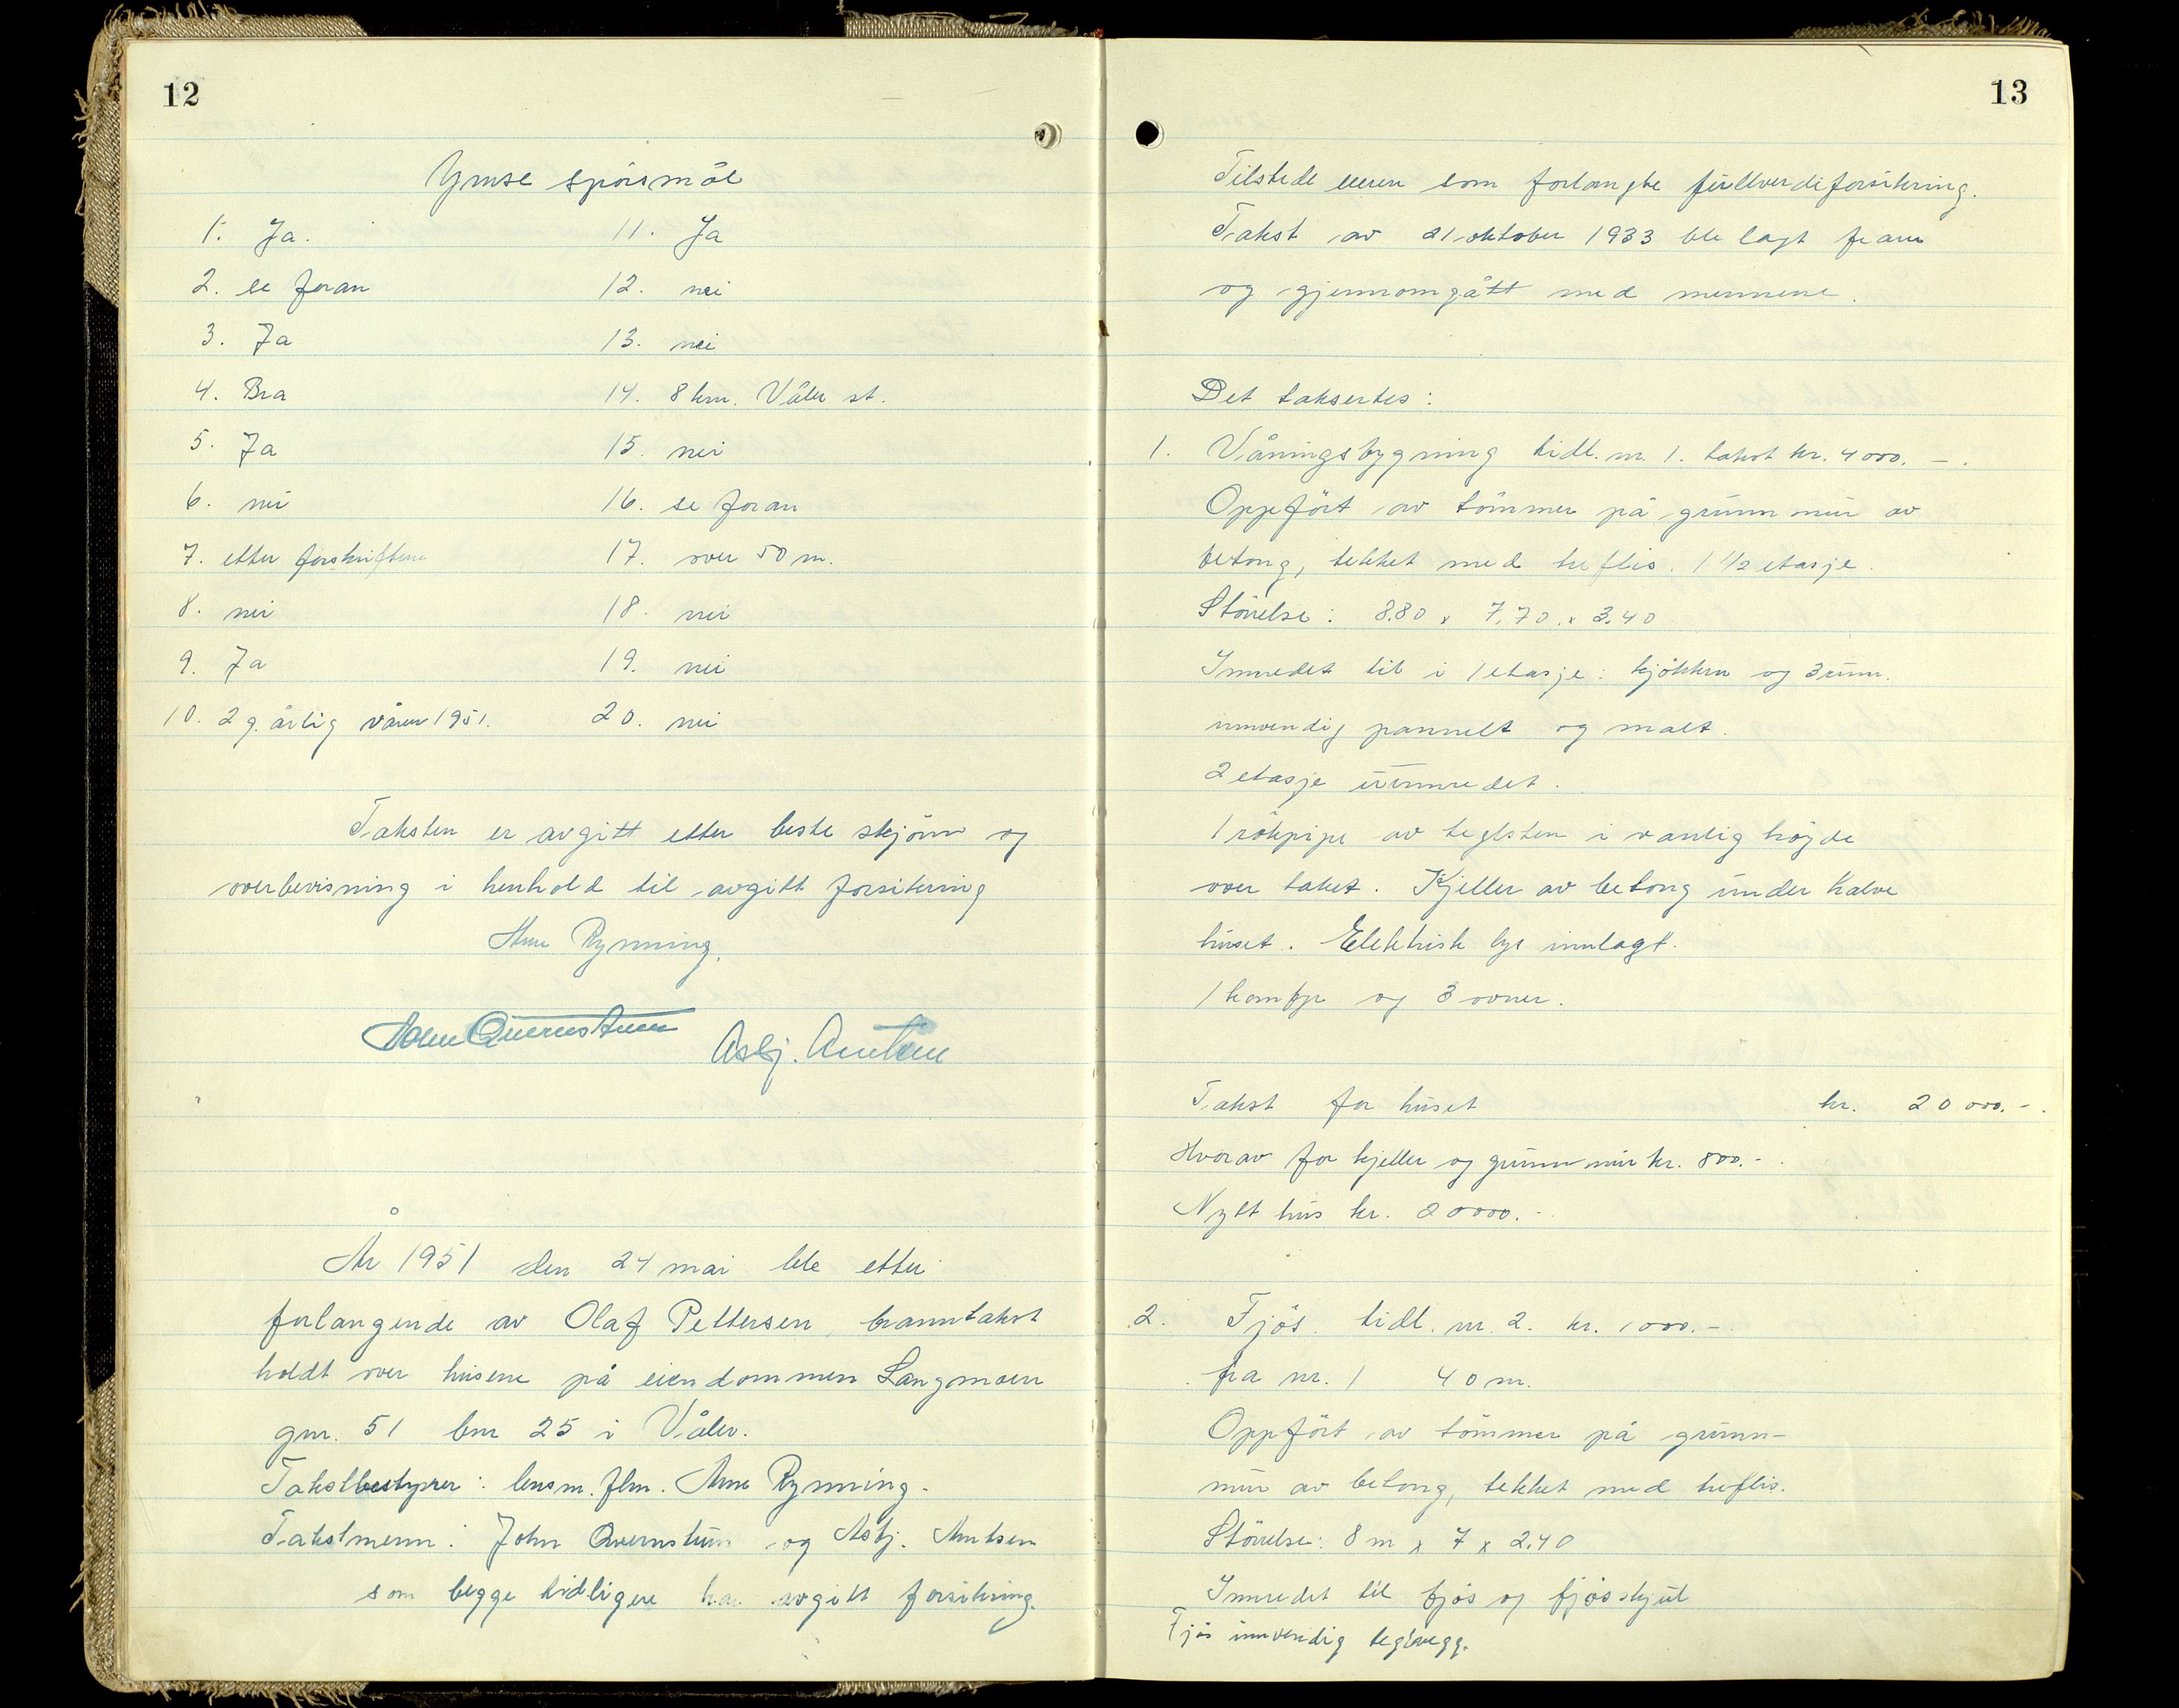 12
Ymse spörsmål
1. Ja.
2. se foran
3. Ja
4. Bra
5. Ja
6. nei
7. etter forskriftene
8. nei
9. Ja
10. 2 g. årlig våren 1951.
11. Ja
12. nei
13. nei
14. 8 km. Våler st.
15. nei
16. se foran
17. over 50 m.
18. nei
19. nei
20. nei
Taksten er avgitt etter beste skjönn og
overbevisning i henhold til avgitt forsikring
Arne Rynning.
John Quernstuen Asbj. Amtsen
År 1951 den 24 mai ble etter
forlangende av Olaf Pettersen, branntakst
holdt over husene på eiendommen Langmoen
gnr. 51 bnr 25 i Våler.
Takstbestyrer: lensm. flm. Arne Rynning.
Takstmenn: John Qvernstuen og Asbj. Amtsen
som begge tidligere har avgitt forsikring.
13
Tilstede eieren som forlangte fullverdiforsikring.
Takst av 21 oktober 1933 ble lagt fram
og gjennomgått med mennene.
Det taksertes:
1. Våningsbygning tidl. nr. 1. takst kr. 4000.-.
Oppfört av tömmer på grunnmur av
betong, tekket med treflis. 1 1/2 etasje.
Störrelse: 8.80 x 7.70 x 3.40
Innredet til i 1 etasje: kjökken og 3 rum.
innvendig pannelt og malt.
2 etasje uinnredet.
1 rökpipe av teglsten i vanlig höyde
over taket. Kjeller av betong under halve
huset. Elektrisk lys innlagt.
1 komfyr og 3 ovner.
Takst for huset kr. 20000.-.
Hvorav for kjeller og grunnmur kr. 800.-.
Nytt hus kr. 20000.-
2. Fjös. tidl. nr. 2. kr. 1000.-
fra nr. 1 40 m.
Oppfört av tömmer på grunn-
mur av betong, tekket med treflis.
Störrelse: 8 m x 7 x 2.40
Innredet til fjös og fjösskjul
Fjös innvendig teglvegg.